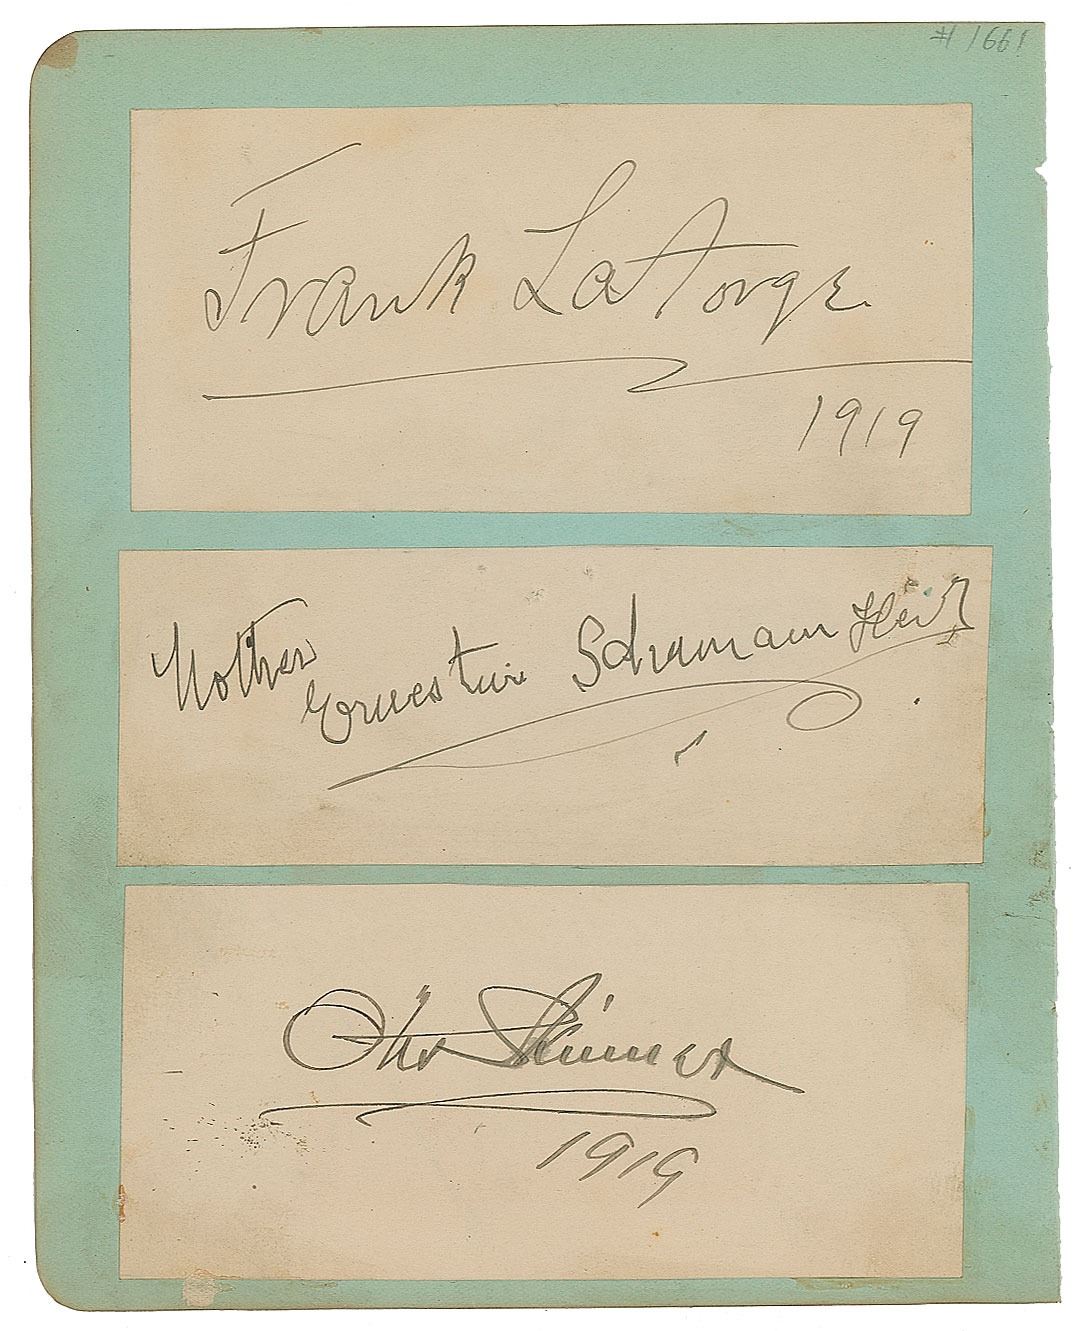 # 1661
Frank La Forge
1919
Mother
Ernestine Schumann Heink
Otis Skinner
1919